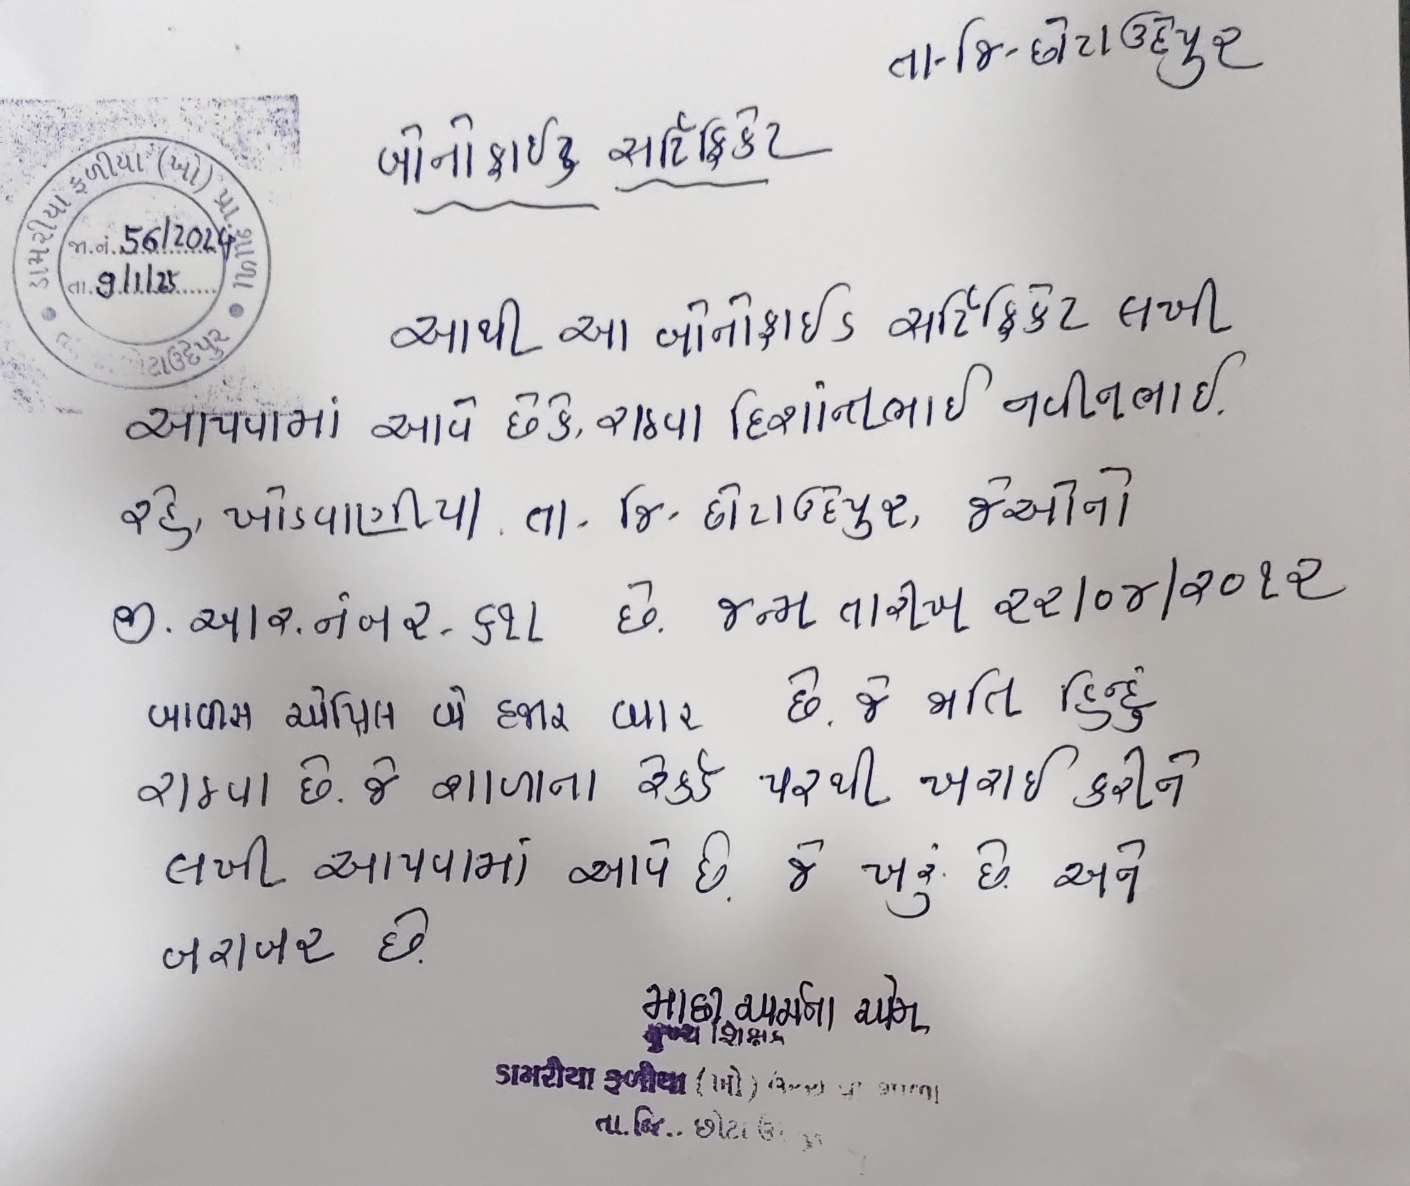 તા-જિ-છોટાઉદેપુર
બોનોફાઈડ સર્ટિફિકેટ
ડામરીયા ફળીયા (ખો) પ્રા.શાળા
જા.નં. 56/2024
તા. 9/1/25
છોટાઉદેપુર
આથી આ બોનોફાઈડ સર્ટિફિકેટ લખી
આપવામાં આવે છેકે, રાઠવા દિશાંતભાઈ નવીનભાઈ.
રહે, ખોડવાણીયા. તા- જિ- છોટાઉદેપુર, જેઓનો
જી. આર. નંબર - ૬૧૮ છે. જન્મ તારીખ ૨૨/૦૪/૨૦૧૨
બાવીસ એપ્રિલ બે હજાર બાર છે. જે જાતિ હિન્દું
રાઠવા છે. જે શાળાના રેકર્ડ પરથી ખરાઈ કરીને
લખી આપવામાં આવે છે. જે ખરું છે. અને
બરાબર છે.
માછી અર્ચના એમ
મુખ્ય શિક્ષક
ડામરીયા ફળીયા (ખો) શાળા
તા.જિ.. છોટા